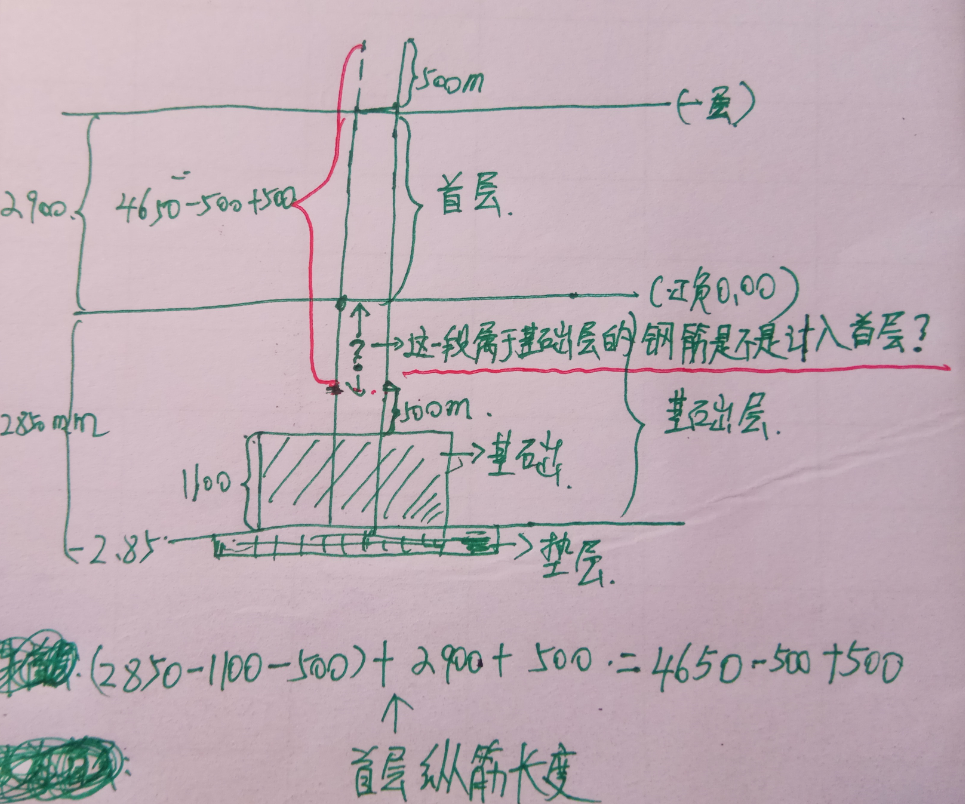 500m
(一层)
2900.
4650-500+500
首层.
(正负0,00)
?
这一段属于基础层的钢筋是不是计入首层?
2850mm
500m.
基础层.
1100
基础.
-2.85
垫层.
(2850-1100-500)+2900+500.=4650-500+500
首层纵筋长度